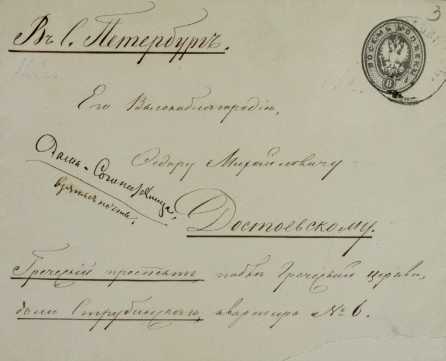 3
Въ С. Петербургъ.
ВОСЕМЬ КОПѢЕКЪ
8
Его Высокоблагородію,
Ѳедору Михайловичу
Дама-Сочинительница.
Достоевскому.
Греческій проспектъ, подлѣ Греческой церкви,
домъ Струбинскаго, квартира № 6.